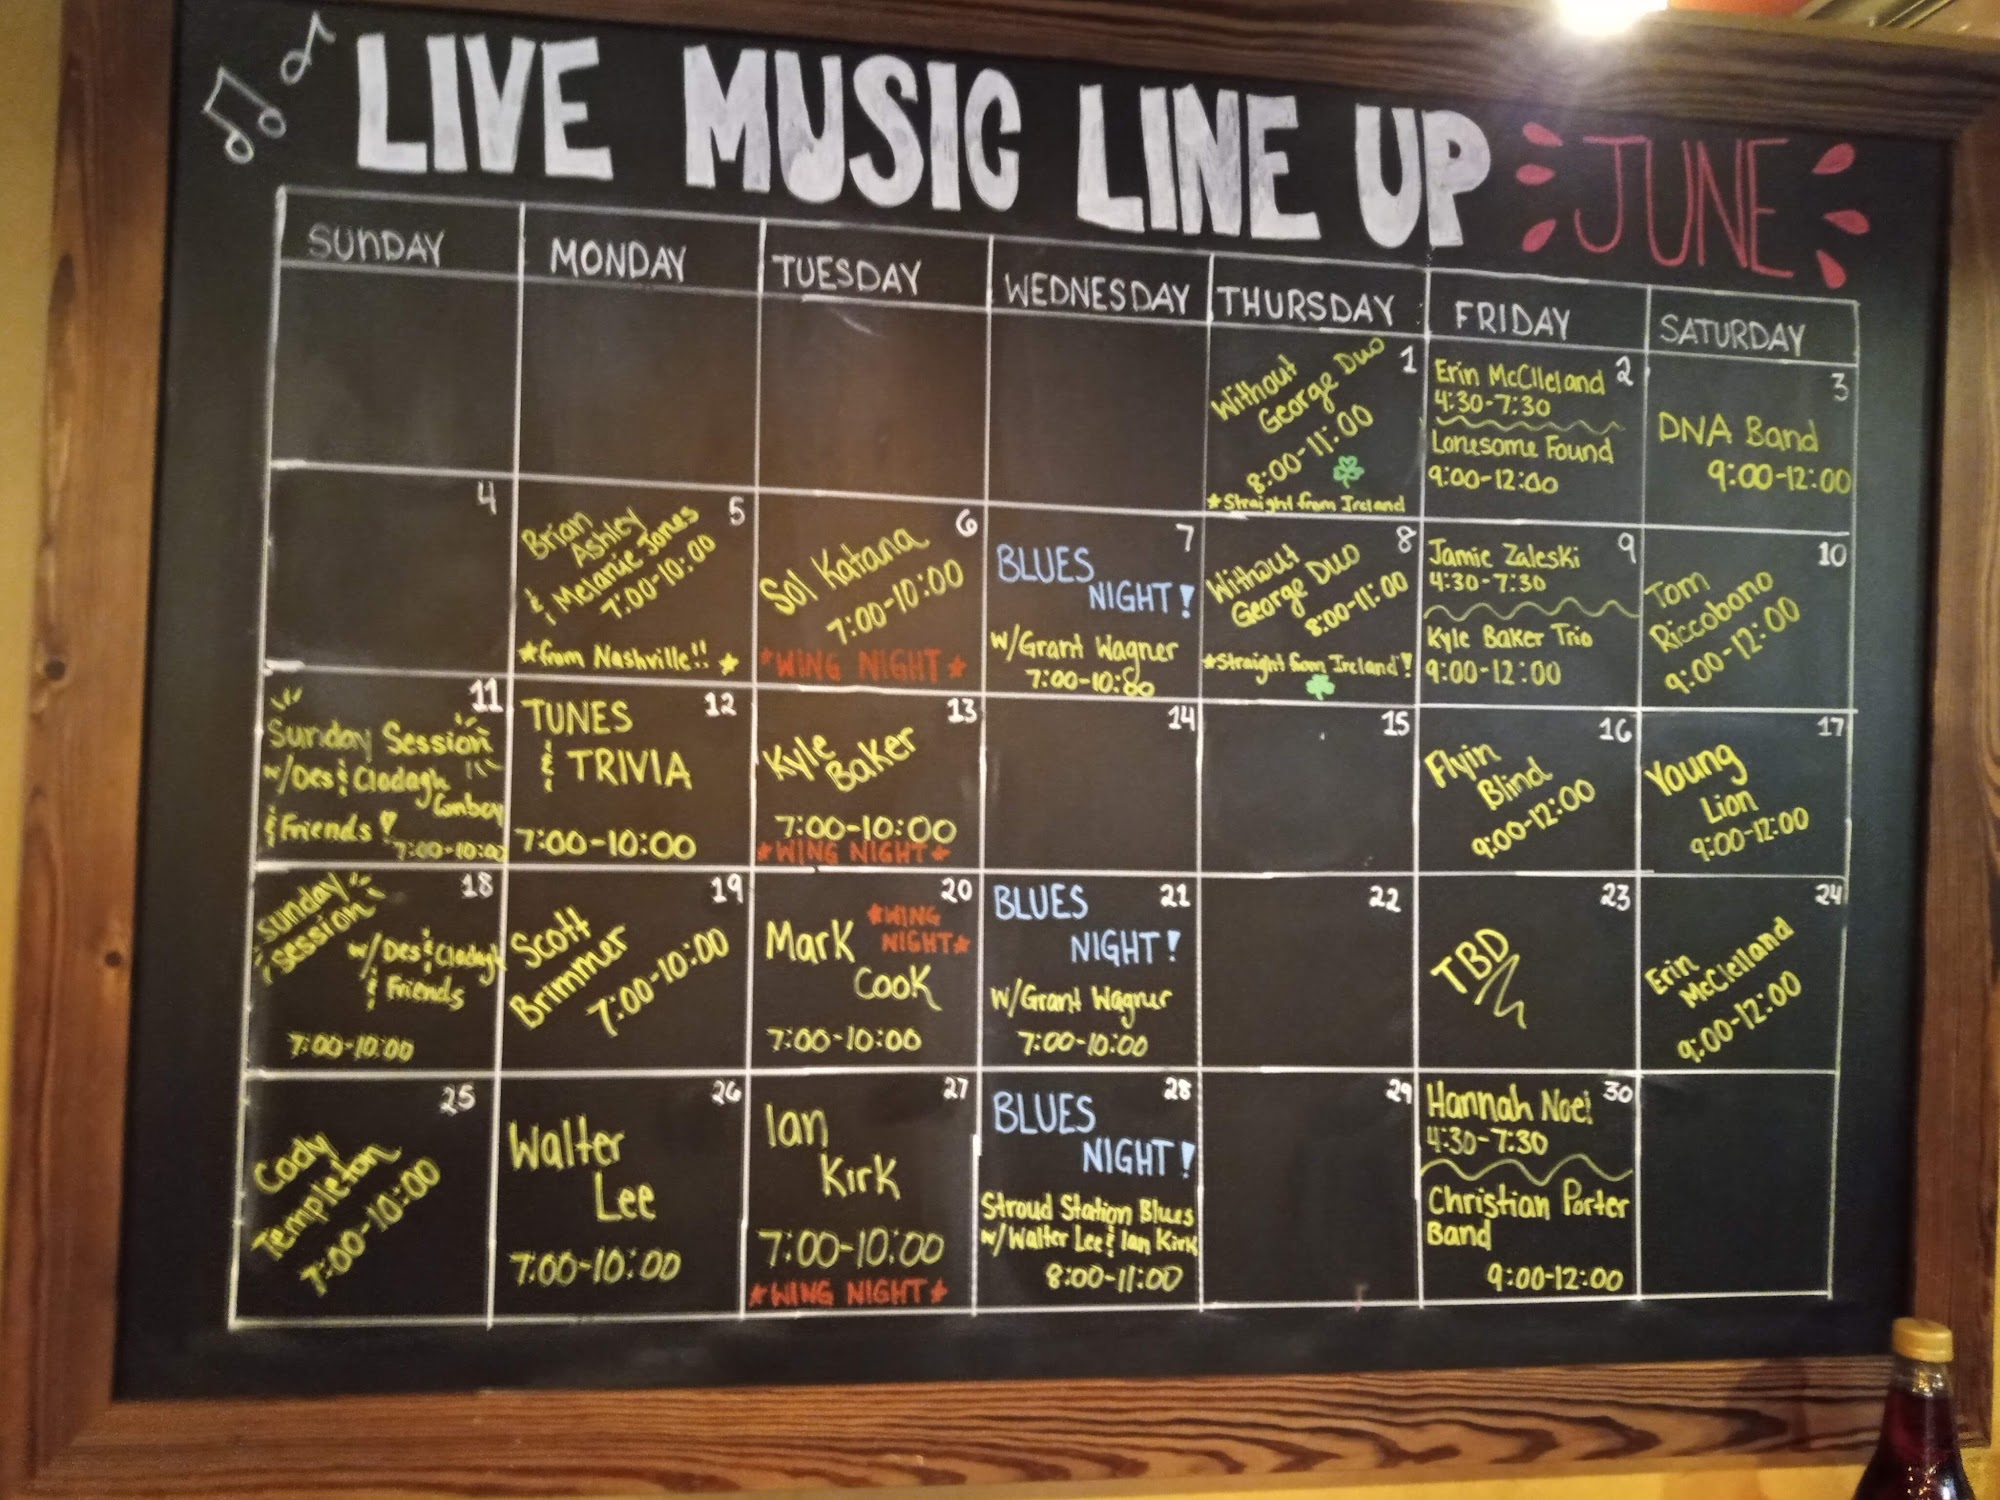 LIVE MUSIC LINE UP JUNE
SUNDAY MONDAY TUESDAY WEDNESDAY THURSDAY FRIDAY SATURDAY
1
Without
George Duo
8:00-11:00
*Straight from Ireland
2
Erin McClleland
4:30-7:30
Lonesome Found
9:00-12:00
3
DNA Band
9:00-12:00
4
5
Brian
Ashley
& Melanie Jones
7:00-10:00
*from Nashville!! *
6
Sol Katana
7:00-10:00
*WING NIGHT*
7
BLUES
NIGHT!
w/Grant Wagner
7:00-10:00
8
Without
George Duo
8:00-11:00
*Straight from Ireland!
9
Jamie Zaleski
4:30-7:30
Kyle Baker Trio
9:00-12:00
10
Tom
Riccobono
9:00-12:00
11
Sunday Session
w/Des & Clodagh
Conboy
& Friends!
7:00-10:00
12
TUNES
& TRIVIA
7:00-10:00
13
Kyle
Baker
7:00-10:00
*WING NIGHT*
14
15
16
Flyin
Blind
9:00-12:00
17
Young
Lion
9:00-12:00
18
Sunday
Session
w/Des & Clodagh
& Friends
7:00-10:00
19
Scott
Brimmer
7:00-10:00
20
*WING
NIGHT*
Mark
Cook
7:00-10:00
21
BLUES
NIGHT!
w/Grant Wagner
7:00-10:00
22
23
TBD
24
Erin
McClelland
9:00-12:00
25
Cody
Templeton
7:00-10:00
26
Walter
Lee
7:00-10:00
27
Ian
Kirk
7:00-10:00
*WING NIGHT*
28
BLUES
NIGHT!
Stroud Station Blues
w/Walter Lee & Ian Kirk
8:00-11:00
29
30
Hannah Noel
4:30-7:30
Christian Porter
Band
9:00-12:00